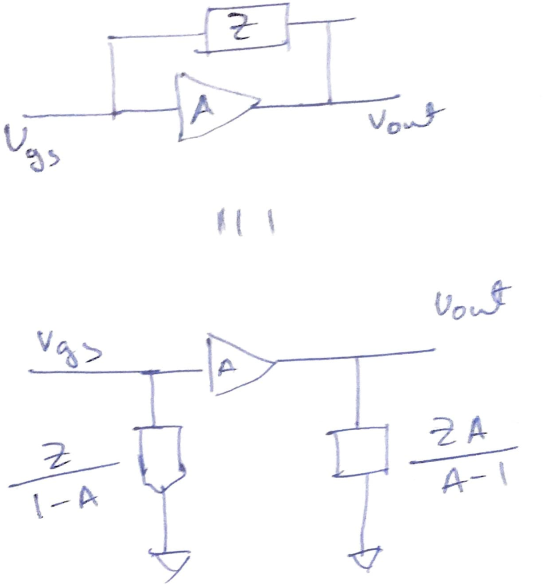 Z
A
Vgs
Vout
|||
Vout
Vgs
A
Z
1-A
ZA
A-1